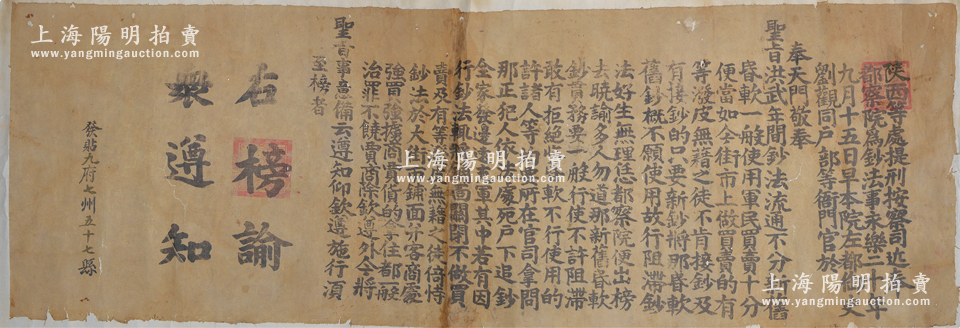 陝西等處提刑按察司近
都察院為鈔法事永樂二十年
九月十五日早本院左都御史
劉觀同戶部等衙門官於
奉天門敬奉
聖旨洪武年間鈔法流通不分新舊
昏軟一般使用軍民買賣十分
便當如今街市上做買賣的有
等潑皮無藉之徒不肯接鈔及
有接鈔的只要新鈔將那昏軟
舊鈔概不願使用故行阻滯鈔
法好生無理恁都察院便出榜
去曉諭多人勿道那新舊昏軟
鈔貫務要一般行使不許阻滯
敢有拒絕昏軟不行使用的
許諸人等所在官司拿問
那正犯人依處死戶下追鈔
全家發邊遠充軍其中若有因
行鈔法輒關閉不做買
賣及有等無藉之徒倚恃
鈔法於大街鋪面分客商處
強買強攎商貨的拿住都一般
治罪不饒賣商除欽遵外今將
聖旨事意備云遵知仰欽遵施行須
至榜者
右榜諭
眾遵知
發貼九府七州五十七縣
上海陽明拍賣
www.yangmingauction.com
上海陽明拍賣
www.yangmingauction.com
上海陽明拍賣
www.yangmingauction.com
上海陽明拍賣
www.yangmingauction.com